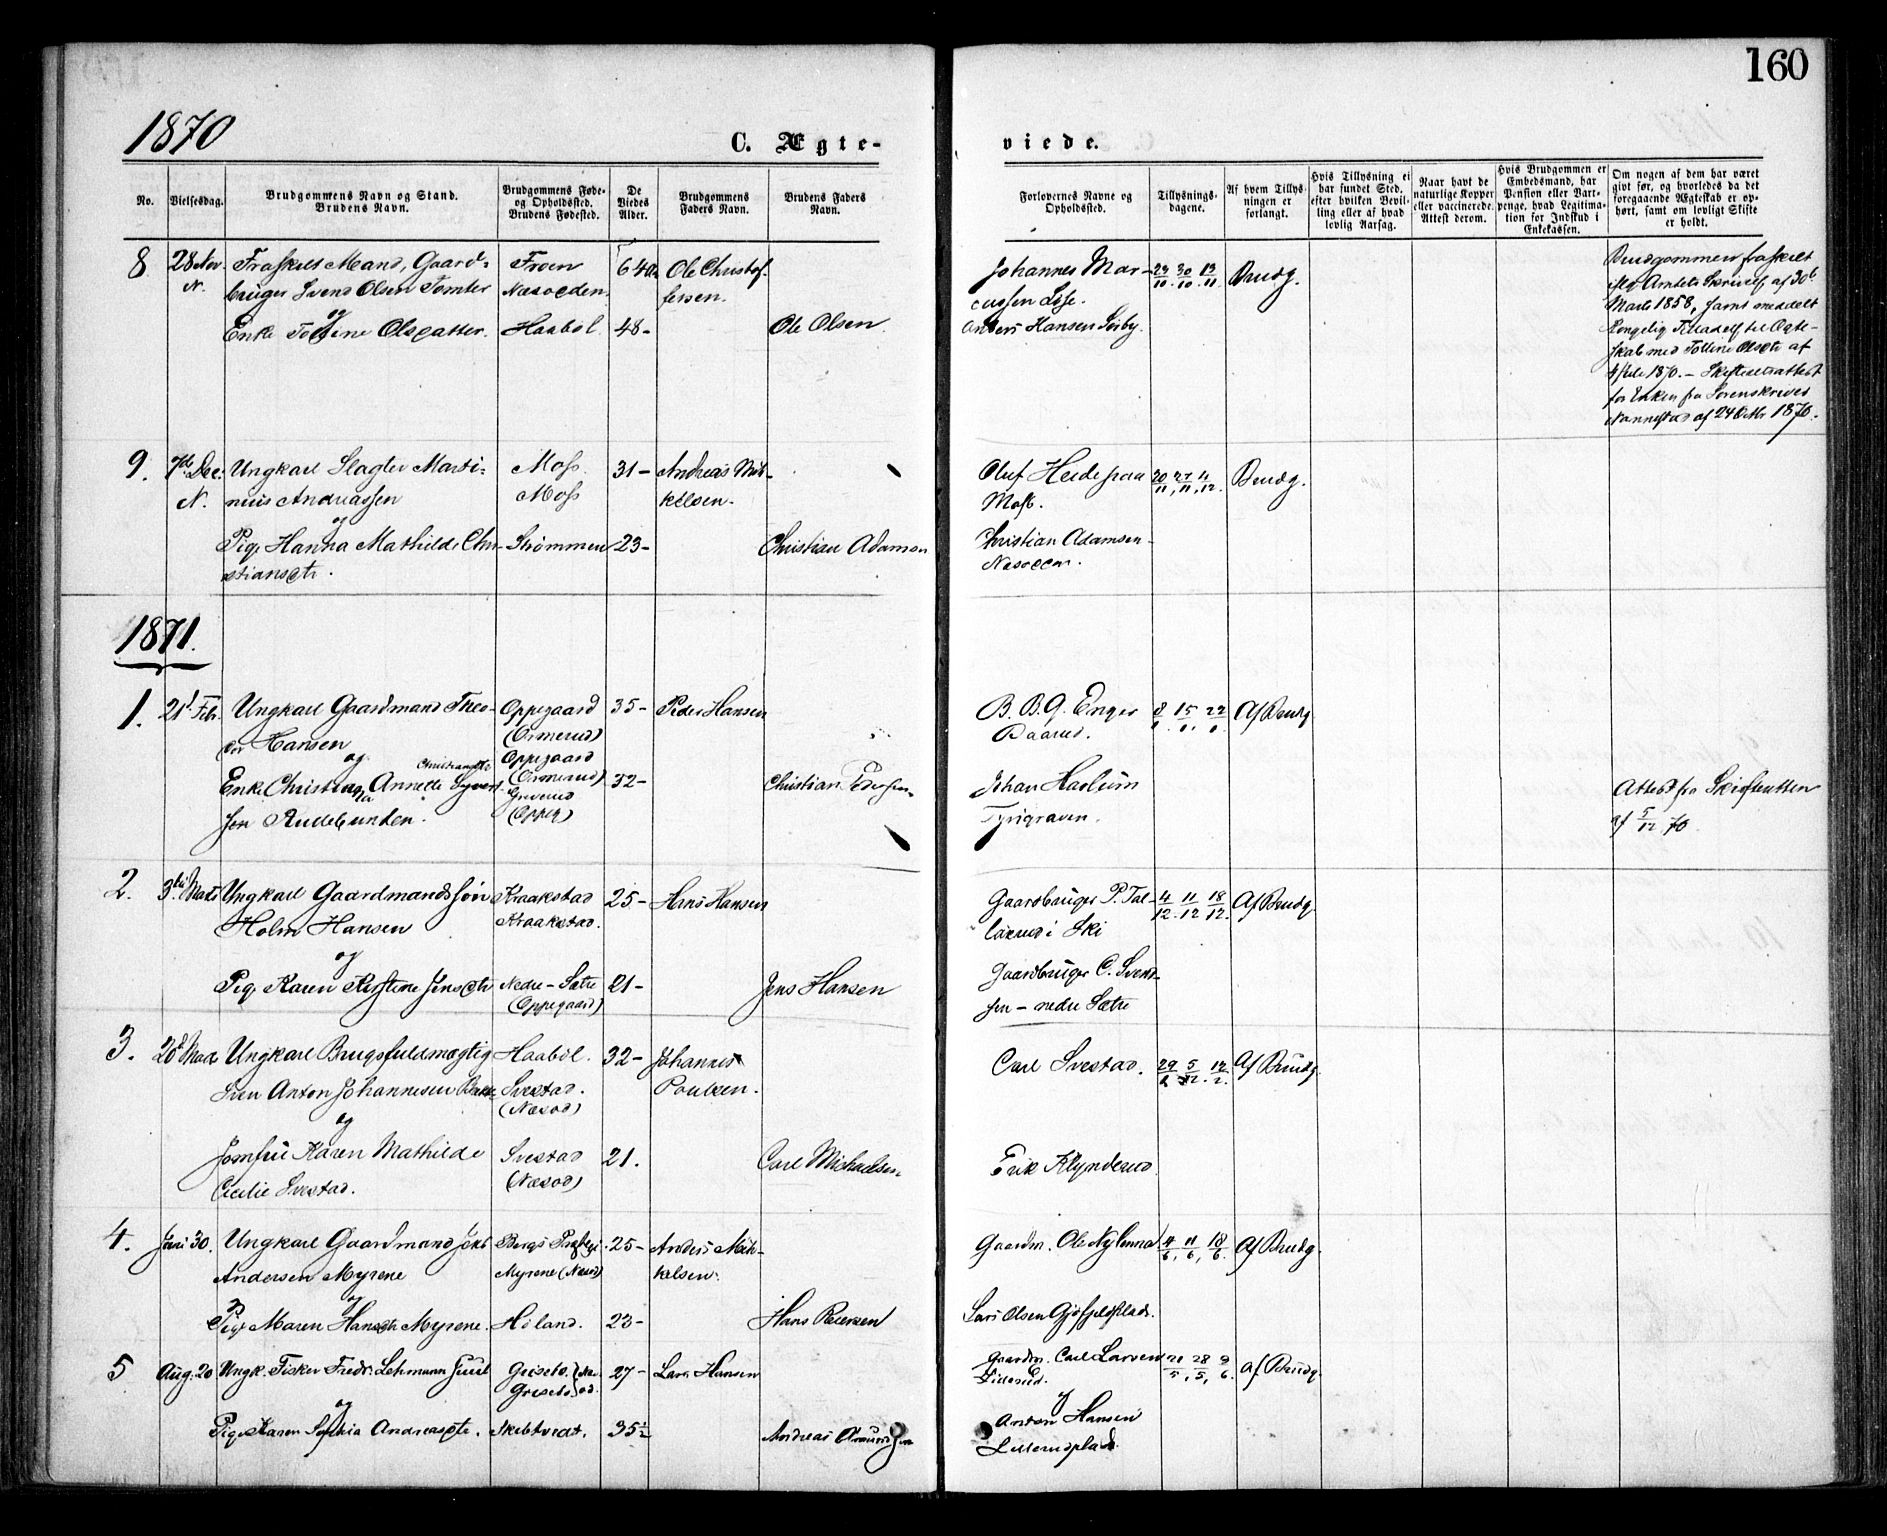 160
1870
C. Ægte-
viede.
No.
Vielsesdag.
Brudgommens Navn og Stand.
Brudens Navn.
Brudgommens Føde-
og Opholdsted.
Brudens Fødested.
De
Viedes
Alder.
Brudgommens
Faders Navn.
Brudens Faders
Navn.
Forlovernes Navne og
Opholdsted.
Tillysnings-
dagene.
Af hvem Tillys-
ningen er
forlangt.
Hvis Tillysning ei
har fundet Sted,
efter hvilken Bevil-
ling eller af hvad
lovlig Aarsag.
Naar havt de
naturlige Kopper
eller vaccinerede.
Attest derom.
Hvis Brudgommen er
Embedsmand, har
Pension eller Vart-
penge, hvad Legitima-
tion for Indskud i
Enkekassen.
Om nogen af dem har været
gift før, og hvorledes da det
foregaaende Ægteskab er op-
hørt, samt om lovligt Skifte
er holdt.
8
28 Nov.
N.
Fraskilt Mand, Gaard-
bruger Svend Olsen Tomter
og
Enke Olsdatter.
Froen
Næsodden.
Haaböl
64
48-
Ole Christof-
fersen.
Ole Olsen
Johannes Mar-
cussen
Anders Hansen Sörby.
29/10. 30/10. 13/11.
Brudg.
Brudgommen fraskilt
Amtets Skrivelse af 30te
Marts 1858, samt meddelt
Kongelig Tilladelse til Ægte-
skab med Olsdtr af
1870. - Skifteretsattest
for Enken fra Sorenskriver
Nannestad af 24 Octbr 1870.
9.
7de Dec.
N.
Ungkarl Slagter Marti-
nius Andreassen
og
Pige Hanna Mathilde Chri-
stiansdtr.
Moss
Moss
Strømmen
31-
23-
Andreas Mik-
kelsen.
Christian Adamsen
Oluf Heide paa
Moss.
Christian Adamsen
Næsodden.
20/11, 27/11, 4/12.
Brudg.
1871.
1.
21 Febr.
Ungkarl Gaardmand Theo-
dor Hansen
og
Christiansdtr
Enke Annette Syvert-
sen Rudebunden.
Oppegaard
(Ormerud)
Oppegaard
(Ormerud)
Greverud
(Oppeg)
35-
32-
Peder Hansen
Christian Pedersen
B. B. G. Enger
Baarud.
Johan Haslum
Tyrigraven.
8 15 22
Af Brudg
Attest fra Skifteretten
af 5/12 70.
2.
3die Marts
Ungkarl Gaardmandssøn
Holm Hansen
og
Pige Karen Kirstine Jensdtr
Kraakstad
Kraakstad.
Nedre-Sætre
(Oppegaard)
25-
21-
Hans Hansen
Jens Hansen
Gaardbruger P. Tal-
lærud i Ski
Gaardbruger C. Svend-
sen - nedre Sætre
4/12. 11/12 18/12.
Af Brudg.
3.
20 Marts
Ungkarl Brugsfuldmægtig
Sven Anton Johannesen
og
Jomfru Karen Mathilde
Cecilie Svestad.
Haaböl.
Svestad.
(Næsod)
Svestad
(Næsod)
32-
21.
Johannes
Poulsen.
Carl Michaelsen
Carl Svestad.
Erik Klynderud
29 5 12
Af Brudg
4.
Juni 30.
Ungkarl Gaardmand
Andersen Myrene
og
Pige Maren Hansdtr Myrene.
Bergs
Myrene (Næsod)
Höland.
25-
23-
Anders Mik-
kelsen.
Hans Reiersen
Gaardm. Ole Nylænna
Lars Olsen Gjöfjeldsplads.
4/6, 11/6, 18/6.
Af Brudg.
5
Aug. 20
Ungk. Fisker Fredr. Lehmann Juul
og
Pige Karen Sophia Andreasdtr.
Griseto.
Griseto
Næs-
od.
Skibtvedt.
27-
35½
Lars Hansen
Andreas Amundsen
Gaardm. Carl Larsen
Lillerud.
Anton Hansen
Lillerudplads.
21/5, 28/5, 9/6.
Af Brudg.